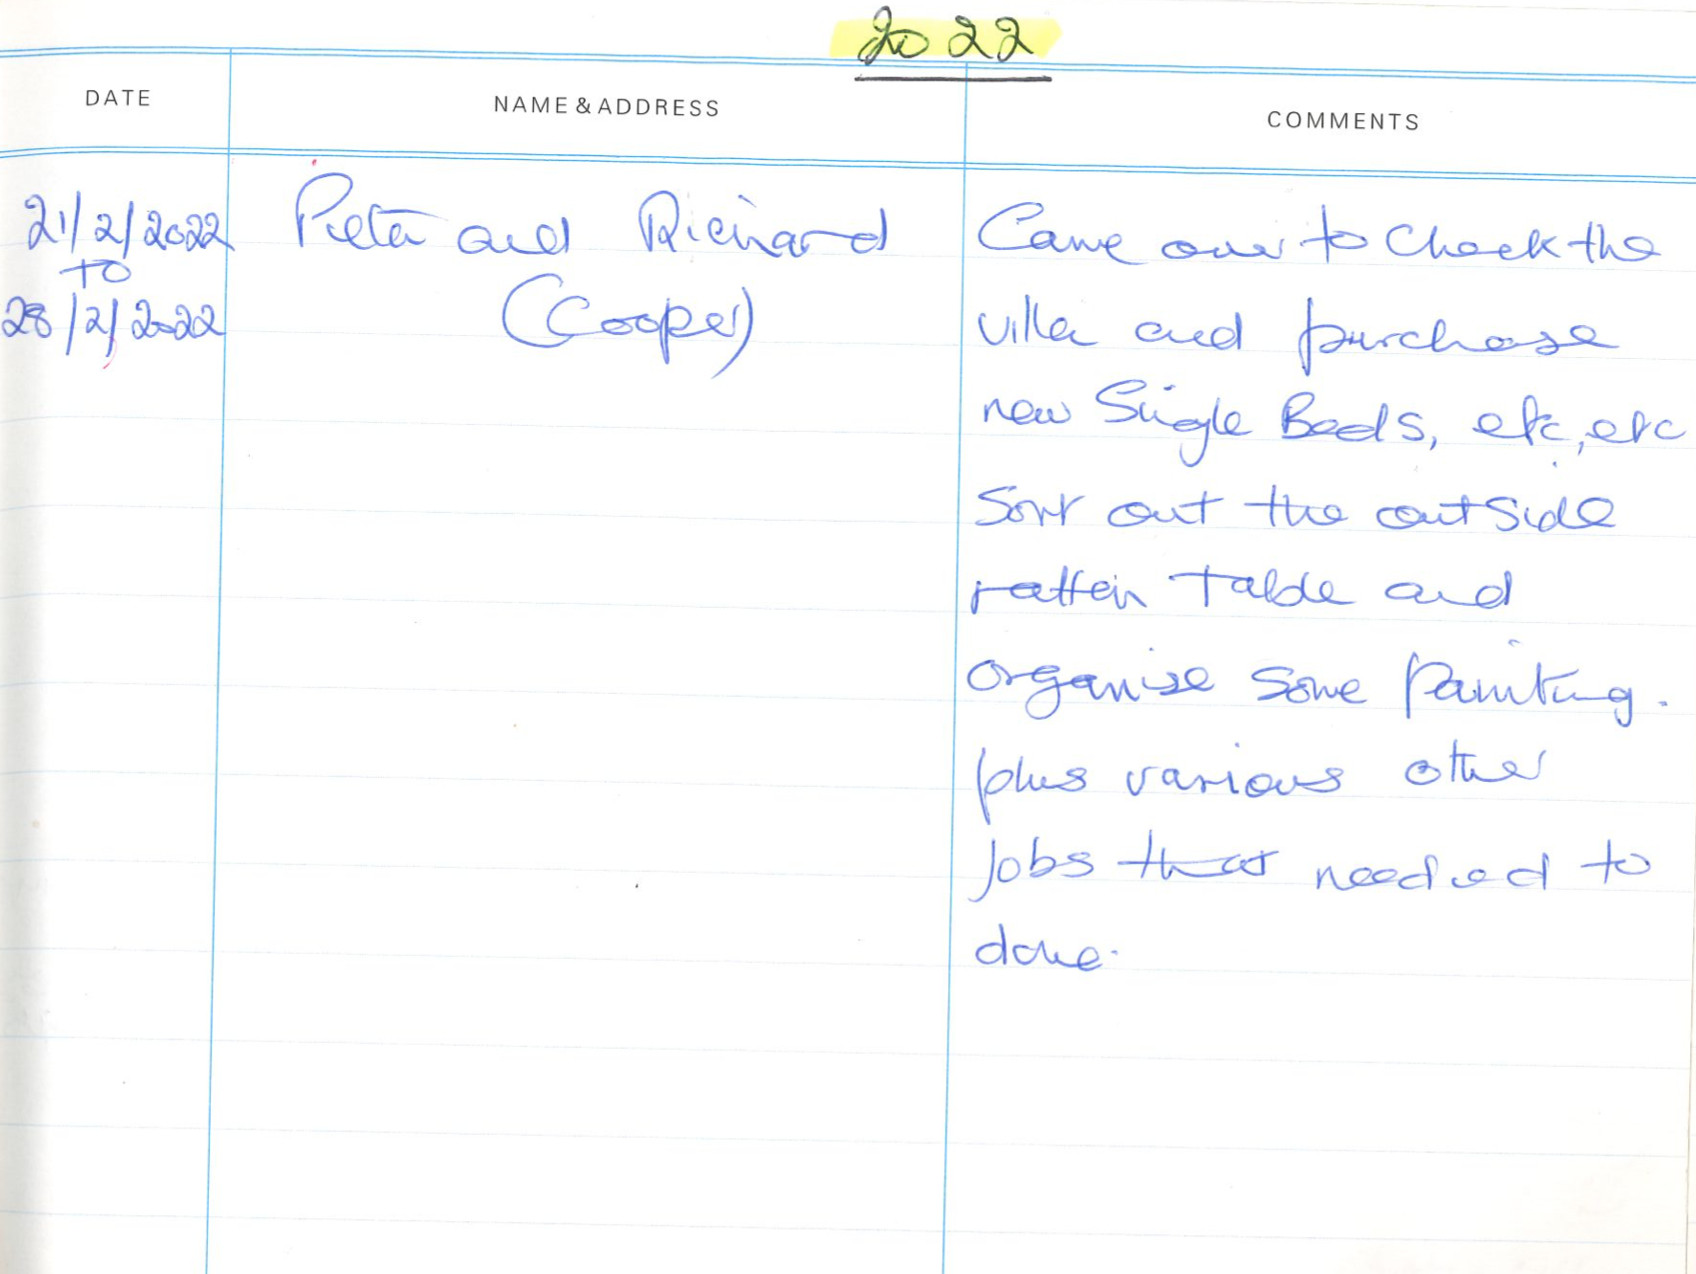 2022
DATE NAME & ADDRESS COMMENTS
21/2/2022
TO
28/2/2022
Peter and Richard
(Cooper)
Came over to check the
villa and purchase
new Single Beds, etc, etc
Sort out the outside
ratten Table and
organise some Painting.
plus various other
Jobs that needed to
done.